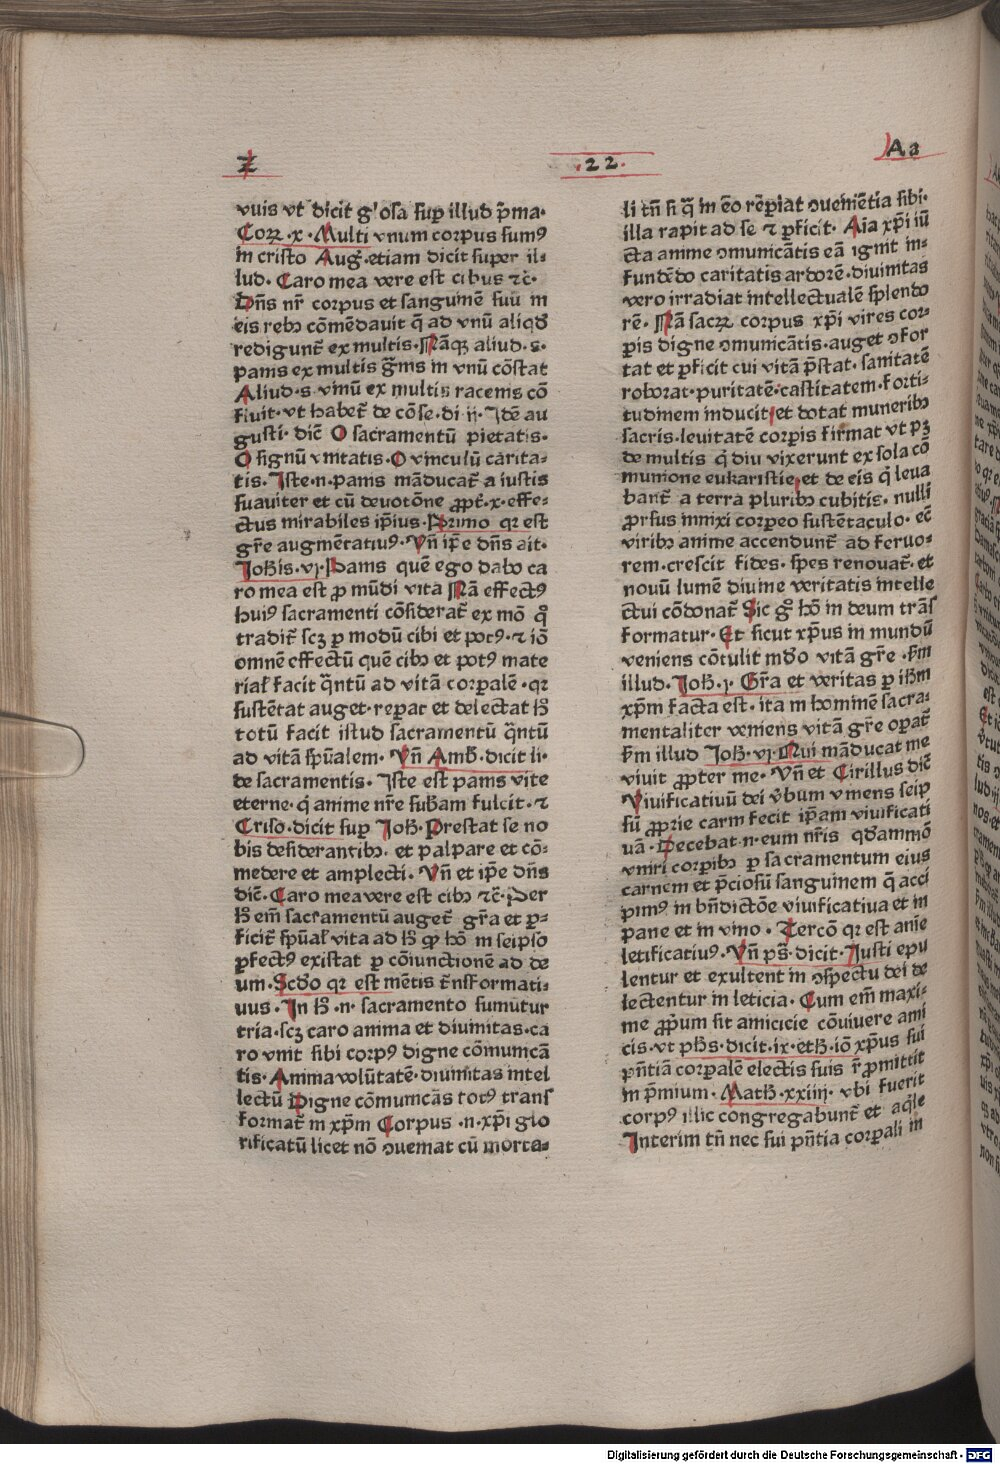 Z
.22.
Aa
vuis vt dicit glosa sup illud p̄ma·
Corꝝ ·x· Multi vnum corpus sumꝰ
in cristo Aug· etiam dicit super il⸗
lud· Caro mea vere est cibus ⁊c̄·
Dn̄s nr̄ corpus et sanguinē suū in
eis rebꝫ cōmēdauit q̄ ad vnū aliqd̄
redigunt̄ ex multis· Nāqꝫ aliud ·s·
panis ex multis g̃nis in vnū cōstat
Aliud ·s· vinū ex multis racemis cō
fluit· vt habet̄ de cōse· di· ij· Itē au
gusti· dic̄ O sacramentū pietatis·
O signū vnitatis· O vinculū carita⸗
tis· Iste ·n· panis māducat̄ a iustis
suauiter et cū deuotōne ꝓpt̄ ·x· effe⸗
ctus mirabiles ip̄ius· Primo qꝛ est
gr̄e augmētatiuꝰ· Vn̄ ip̄e dn̄s ait·
Joh̄is ·vj· Panis quē ego dabo ca
ro mea est ꝓ mūdi vita Nā effectꝰ
huiꝰ sacramenti cōsiderat̄ ex mō qͦ
tradit̄ scꝫ ꝑ modū cibi et potꝰ· ⁊ iō
omnē effectū quē cibꝰ et potꝰ mate
rial̄ facit q̄ntū ad vitā corꝑalē· qꝛ
sustētat auget· reꝑat et delectat h̄
totū facit istud sacramentū q̄ntū
ad vitā sp̄ualem· Vn̄ Amb̄· dicit li·
de sacramentis· Iste est panis vite
eterne· q̄ anime nr̄e sub̄am fulcit· ⁊
Criso· dicit sup Joh̄· Prestat se no
bis desiderantibꝫ· et palpare et cō⸗
medere et amplecti· Vn̄ et ip̄e dn̄s
dic̄· Caro mea vere est cibꝰ ⁊c̄· Per
h̄ em̄ sacramentū auget̄ gr̄a et ꝑ⸗
ficit̄ sp̄ual̄ vita ad h̄ ꝙ hō in seipso
ꝑfectꝰ existat ꝑ cōiunctionē ad de
um· Scdo qꝛ est mētis t̄nsformati⸗
uus· In h̄ ·n· sacramento sumūtur
tria· scꝫ caro anima et diuinitas· ca
ro vnit sibi corpꝰ digne cōmunicā
tis· Anima volūtatē· diuinitas intel
lectū Digne cōmunicās totꝰ trans
format̄ in xp̄m Corpus ·n· xp̄i glo
rificatū licet nō ꝯueniat cū morta⸗
li tn̄ si q̄ in eo rēꝑiat ꝯueniētia sibi·
illa rapit ad se ⁊ ꝑficit· Aīa xp̄i iū
cta anime ꝯmunicātis eā ignit in⸗
fundēdo caritatis ardorē· diuinitas
vero irradiat intellectualē splendo
rē· Nā sacꝝ corpus xp̄i vires cor⸗
ꝑis digne ꝯmunicātis· auget ꝯfor
tat et ꝑficit cui vitā p̄stat· sanitatē
roborat· puritatē· castitatem· forti⸗
tudinem inducit et dotat muneribꝫ
sacris· leuitatē corꝑis firmat vt pꝫ
de multis q̄ diu vixerunt ex sola cō
munione eukaristie et de eis q̄ leua
bant̄ a terra pluribꝫ cubitis· nulli
ꝓrsus innixi corꝑeo sustētaculo· ec̄
viribꝫ anime accendunt̄ ad feruo⸗
rem· crescit fides· spes renouat̄· et
nouū lumē diuine veritatis intelle
ctui cōdonat̄ Sic gͦ hō in deum trās
formatur· Et sicut xp̄us in mundū
veniens cōtulit mdo vitā gr̄e· ẜm
illud· Joh̄· j· Gr̄a et veritas ꝑ ih̄m
xp̄m facta est· ita in hominē sacra⸗
mentaliter veniens vitā gr̄e oꝑat̄
ẜm illud Joh̄· vj· Qui māducat me
viuit ꝓpter me· Vn̄ et Cirillus dic̄
Viuificatiuū dei v̄bum vniens seip
sū ꝓprie carni fecit ip̄am viuificati
uā· Decebat ·n· eum nr̄is qd̄ammō
vniri corꝑibꝫ ꝑ sacramentum eius
carnem et p̄ciosū sanguinem q̄ acci
pimꝰ in bn̄dictōe viuificatiua et in
pane et in vino· Tercō qꝛ est anīe
letificatiuꝰ· Vn̄ ps̄· dicit· Iusti epu
lentur et exultent in ꝯspectu dei de
lectentur in leticia· Cum em̄ maxi⸗
me ꝓpum sit amicicie cōuiuere ami
cis· vt ph̄s· dicit· ix· eth̄· iō xp̄us sui
pn̄tiā corꝑalē electis suis r̄ promittit
in p̄mium· Math̄· xxiiij· vbi fuerit
corpꝰ illic congregabunt̄ et aq̄le
Interim tn̄ nec sui pn̄tia corꝑali in
Digitalisierung gefördert durch die Deutsche Forschungsgemeinschaft - DFG